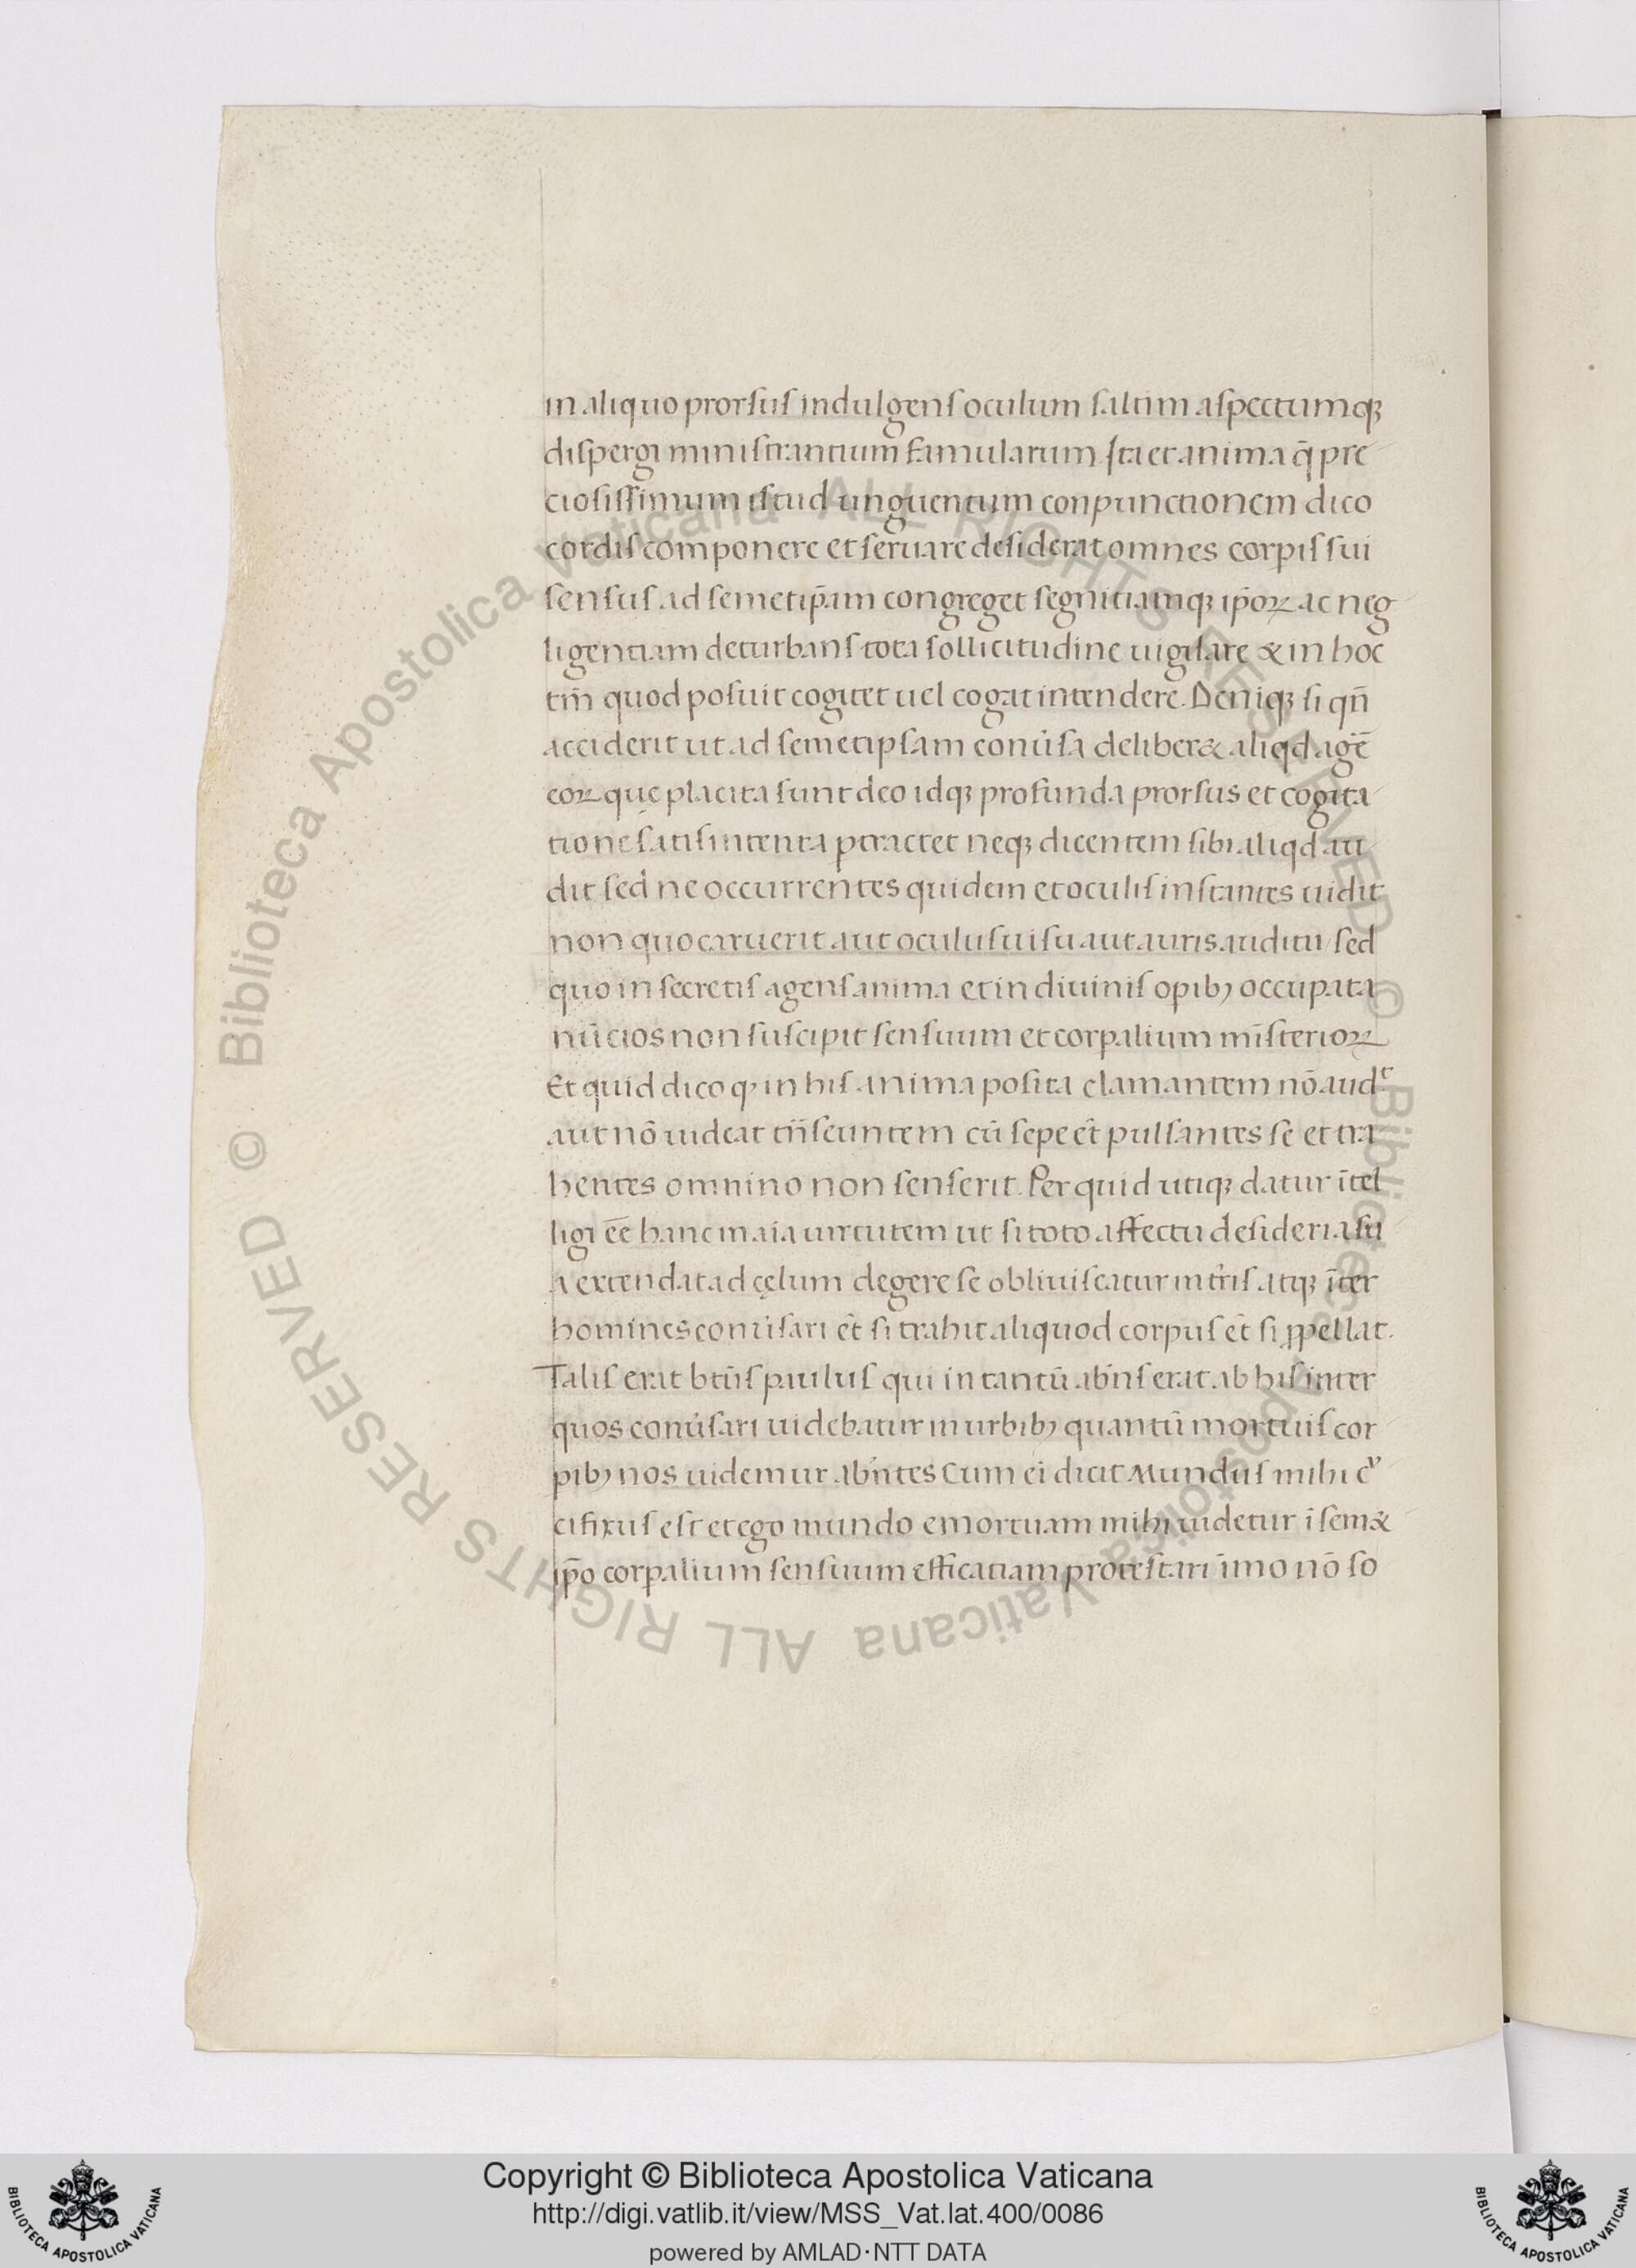 in aliquo prorsus indulgens oculum saltim aspectumqꝫ
dispergi ministrantium famularum. Ita et anima q̄ pre
ciosissimum istud unguentum conpunctionem dico
cordis componere et seruare desiderat omnes corꝑis sui
sensus ad semetip̄am congreget segnitiamqꝫ ip̄oꝝ ac neg
ligentiam deturbans tota sollicitudine uigilare & in hoc
tm̄ quod posuit cogitet uel cogat intendere. Deniqꝫ si qn̄
acciderit ut ad semetipsam conũsa deliber& aliqd agẽ
eoꝝ que placita sunt deo idqꝫ profunda prorsus et cogita
tione satis intenta ꝑtractet neqꝫ dicentem sibi aliqd au
dit sed ne occurrentes quidem et oculis instantes uidit
non quo caruerit aut oculus uisu aut auris auditu / sed
quo in secretis agens anima et in diuinis oꝑibꝫ occupata
nũcios non suscipit sensuum et corꝑalium mīsterioꝝ
Et quid dico qꝫ in his anima posita clamantem nō audᵗ
aut nō uideat trn̄seuntem cũ sepe et̄ pulsantes se et tra
hentes omnino non senserit. Per quid utiqꝫ datur ītel
ligi ee̅ hanc in aīa uirtutem ut si toto affectu desideria su
a extendat ad cęlum degere se obliuiscatur in tr̄is atqꝫ īter
homines conũsari et̄ si trahit aliquod corpus et̄ si ꝓpellat.
Talis erat btũs paulus qui in tantũ abn̄s erat ab his inter
quos conũsari uidebatur in urbibꝫ quantũ mortuis cor
ꝑibꝫ nos uidemur abn̄tes Cum ei dicit Mundus mihi cͮ
cifixus est et ego mundo emortuam mihi uidetur ī sem&
ip̄o corꝑalium sensuum efficatiam protestari īmo nō so
Copyright © Biblioteca Apostolica Vaticana
http://digi.vatlib.it/view/MSS_Vat.lat.400/0086
powered by AMLAD·NTT DATA
BIBLIOTECA APOSTOLICA VATICANA
BIBLIOTECA APOSTOLICA VATICANA
© Biblioteca Apostolica Vaticana ALL RIGHTS RESERVED © Biblioteca Apostolica Vaticana ALL RIGHTS RESERVED